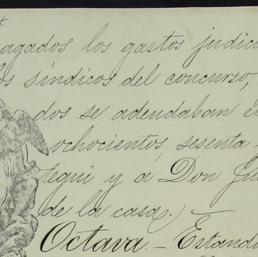 pagados los gastos judici
los síndicos del concurso,
dos se adeudaban á
ochocientos sesenta
tegui y á Don Ju
de la casa.)
Octava.- Estand